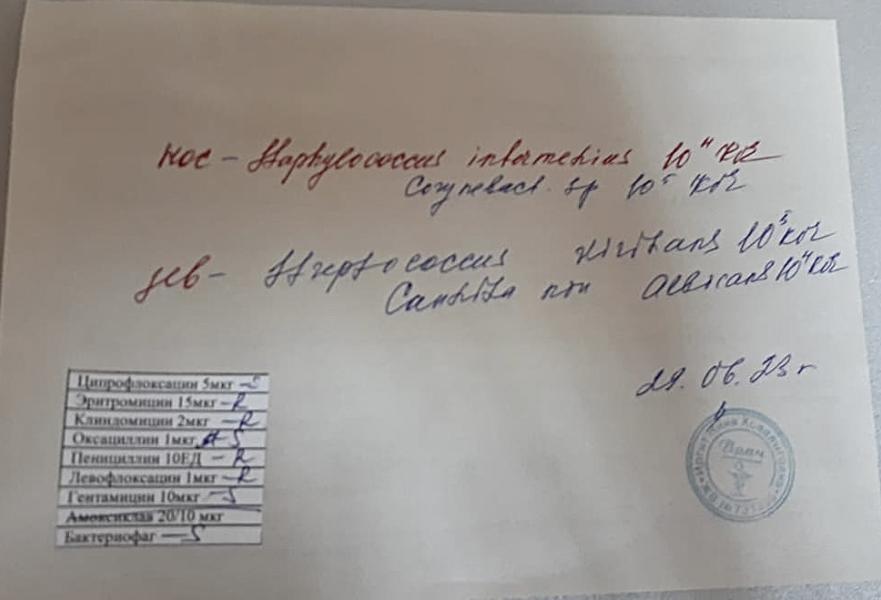 нос – Staphylococcus intermedius 10⁴ КОЕ
Corynebact. sp 10⁵ КОЕ
зев – Streptococcus viridans 10⁵ КОЕ
Candida non Albicans 10⁴ КОЕ
29.06.23 г
Ципрофлоксацин 5мкг – S
Эритромицин 15мкг – R
Клиндомицин 2мкг – R
Оксациллин 1мкг S
Пенициллин 10ЕД – R
Левофлоксацин 1мкг – R
Гентамицин 10мкг – S
Амоксиклав 20/10 мкг
Бактериофаг – S
Врач